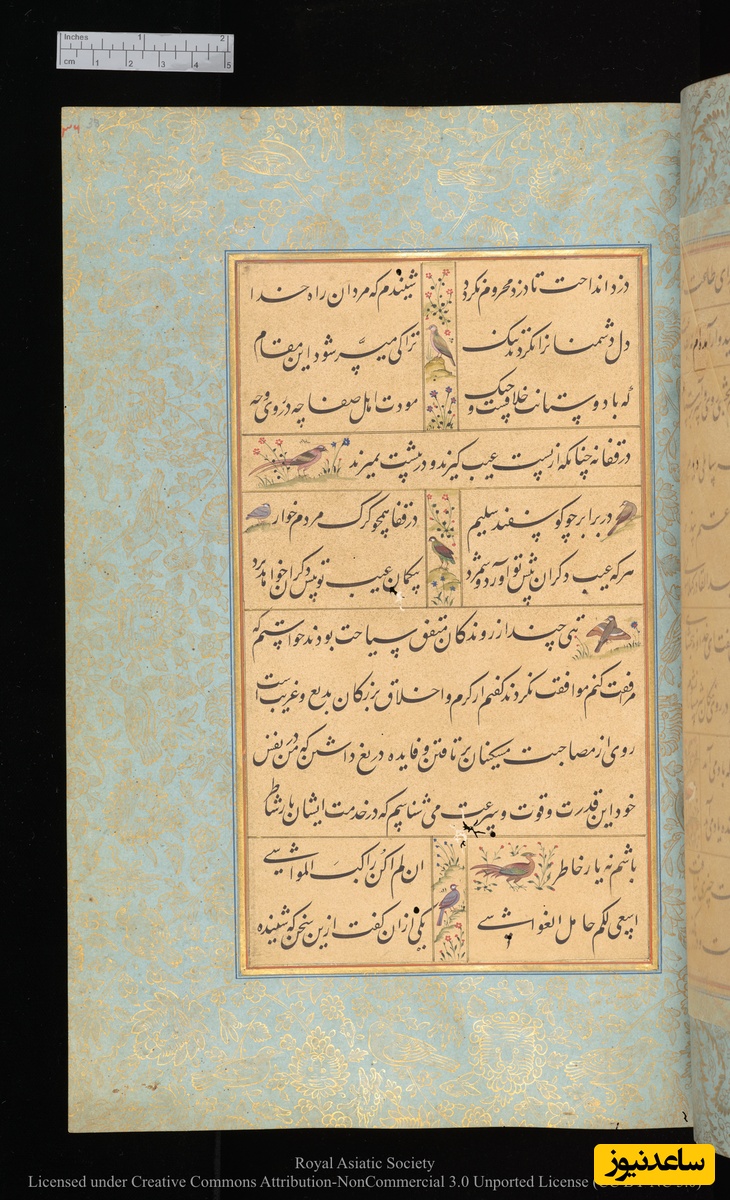 Inches 1 2
cm 1 2 3 4 5
۳۶ 36
دزد انداخت تا دزد محروم نکردد شنیدم که مردان راه خدا
دل دشمنان را نکردند تنک ترا کی میسّر شود این مقام
که با دوستانت خلافست و جنک مودت اهل صفا چه در روی و چه
در قفا نه چنانکه از پست عیب کیرند و در پیشت بمیرند
در برابر چو کوسپند سلیم در قفا همچو کرک مردم خوار
هر که عیب دکران پیش تو آورد و شمرد بیکمان عیب تو پیش دکران خواهد برد
تنی چند از روندکان متفق سیاحت بودند خواستم که
مرافقت کنم موافقت نکردند کفتم از کرم و اخلاق بزرکان بدیع و غریب است
روی از مصاحبت مسکینان برتافتن و فایده دریغ داشتن که من در نفس
خود این قدرت و قوت و سرعت می شناسم که در خدمت ایشان یار شاطر
باشم نه یار خاطر ان لم اکن راکب المواشی
اسعی لکم حامل الغواشی یکی از ان کفت ازین سخن که شنیده
Royal Asiatic Society
Licensed under Creative Commons Attribution-NonCommercial 3.0 Unported License
ساعدنیوز